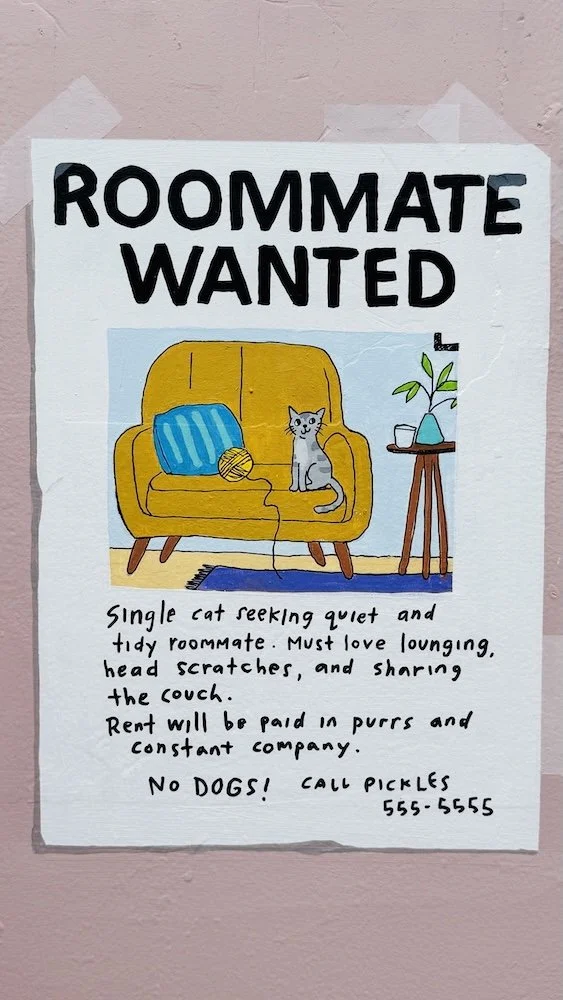 ROOMMATE
WANTED
Single cat seeking quiet and
tidy roommate. Must love lounging,
head scratches, and sharing
the couch.
Rent will be paid in purrs and
constant company.
NO DOGS! CALL PICKLES
555-5555